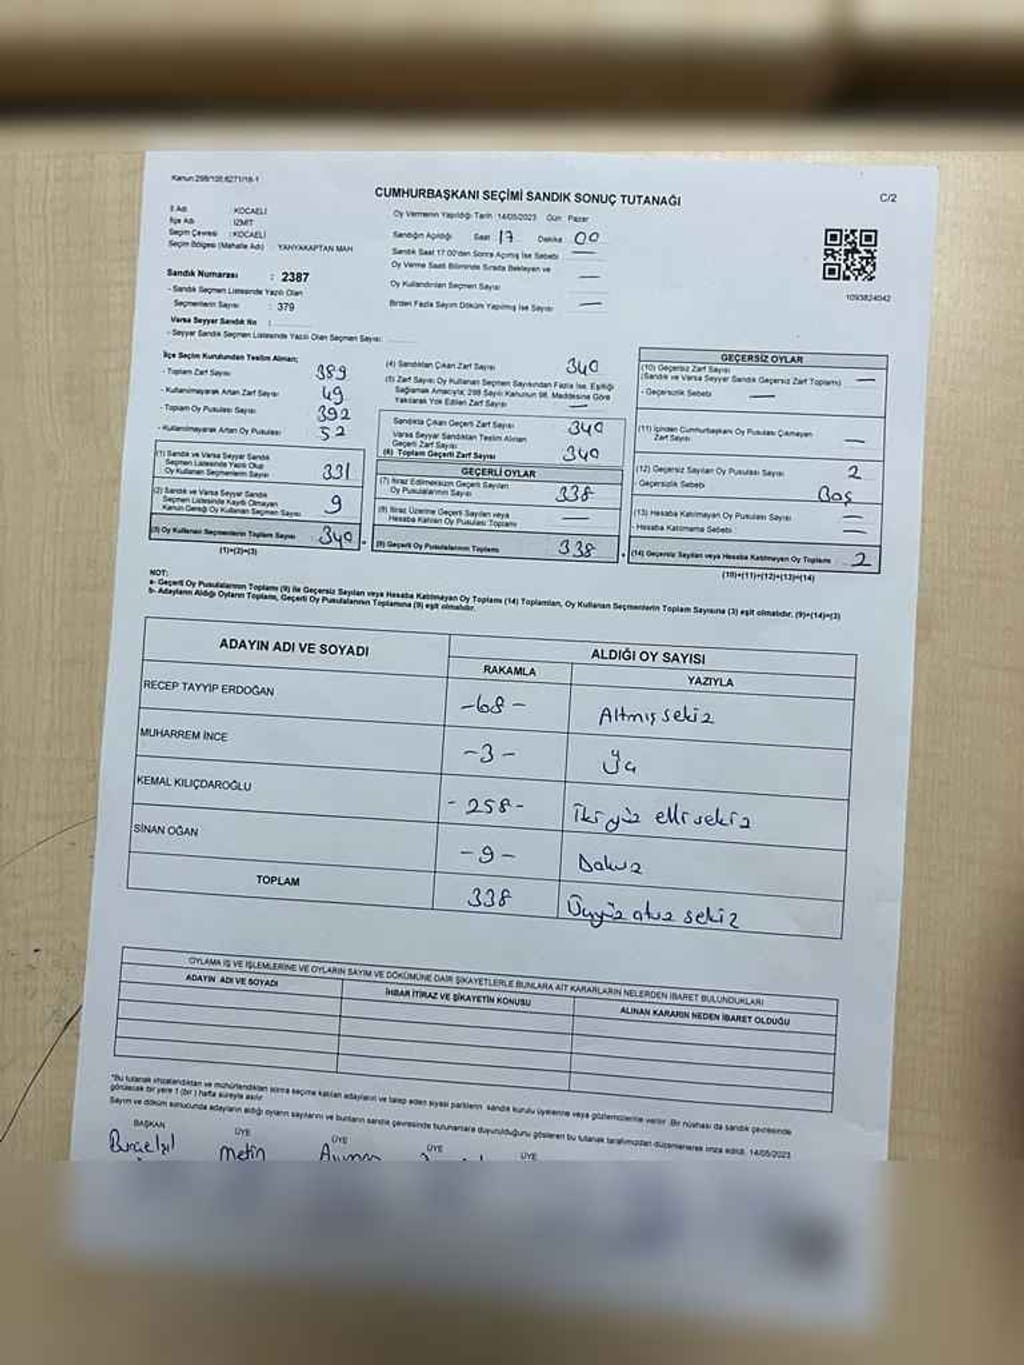 Kanun 298/105;6271/18-1
CUMHURBAŞKANI SEÇİMİ SANDIK SONUÇ TUTANAĞI
C/2
İl Adı : KOCAELİ
İlçe Adı : İZMİT
Seçim Çevresi : KOCAELİ
Seçim Bölgesi (Mahalle Adı) : YAHYAKAPTAN MAH
Sandık Numarası : 2387
- Sandık Seçmen Listesinde Yazılı Olan
Seçmenlerin Sayısı : 379
Varsa Seyyar Sandık No :
- Seyyar Sandık Seçmen Listesinde Yazılı Olan Seçmen Sayısı:
Oy Vermenin Yapıldığı Tarih 14/05/2023 Gün: Pazar
Sandığın Açıldığı Saat 17 Dakika 00
Sandık Saat 17.00'den Sonra Açılmış İse Sebebi —
Oy Verme Saati Bitiminde Sırada Bekleyen ve
Oy Kullandırılan Seçmen Sayısı —
Birden Fazla Sayım Döküm Yapılmış İse Sayısı —
1093824042
İlçe Seçim Kurulundan Teslim Alınan;
- Toplam Zarf Sayısı 389
- Kullanılmayarak Artan Zarf Sayısı 49
- Toplam Oy Pusulası Sayısı 392
- Kullanılmayarak Artan Oy Pusulası 52
(1) Sandık ve Varsa Seyyar Sandık
Seçmen Listesinde Yazılı Olup
Oy Kullanan Seçmenlerin Sayısı 331
(2) Sandık ve Varsa Seyyar Sandık
Seçmen Listesinde Kayıtlı Olmayan
Kanun Gereği Oy Kullanan Seçmen Sayısı 9
(3) Oy Kullanan Seçmenlerin Toplam Sayısı 340
(1)+(2)=(3)
(4) Sandıktan Çıkan Zarf Sayısı 340
(5) Zarf Sayısı Oy Kullanan Seçmen Sayısından Fazla İse, Eşitliği
Sağlamak Amacıyla; 298 Sayılı Kanunun 98. Maddesine Göre
Yakılarak Yok Edilen Zarf Sayısı —
Sandıkta Çıkan Geçerli Zarf Sayısı 340
Varsa Seyyar Sandıktan Teslim Alınan
Geçerli Zarf Sayısı
(6) Toplam Geçerli Zarf Sayısı 340
GEÇERLİ OYLAR
(7) İtiraz Edilmeksizin Geçerli Sayılan
Oy Pusulalarının Sayısı 338
(8) İtiraz Üzerine Geçerli Sayılan veya
Hesaba Katılan Oy Pusulası Toplamı —
(9) Geçerli Oy Pusulalarının Toplamı 338
GEÇERSİZ OYLAR
(10) Geçersiz Zarf Sayısı
(Sandık ve Varsa Seyyar Sandık Geçersiz Zarf Toplamı) —
- Geçersizlik Sebebi —
(11) İçinden Cumhurbaşkanı Oy Pusulası Çıkmayan
Zarf Sayısı —
(12) Geçersiz Sayılan Oy Pusulası Sayısı 2
- Geçersizlik Sebebi Boş
(13) Hesaba Katılmayan Oy Pusulası Sayısı —
- Hesaba Katılmama Sebebi —
(14) Geçersiz Sayılan veya Hesaba Katılmayan Oy Toplamı 2
(10)+(11)+(12)+(13)=(14)
NOT:
a- Geçerli Oy Pusulalarının Toplamı (9) ile Geçersiz Sayılan veya Hesaba Katılmayan Oy Toplamı (14) Toplamları, Oy Kullanan Seçmenlerin Toplam Sayısına (3) eşit olmalıdır. (9)+(14)=(3)
b- Adayların Aldığı Oyların Toplamı, Geçerli Oy Pusulalarının Toplamına (9) eşit olmalıdır.
ADAYIN ADI VE SOYADI
ALDIĞI OY SAYISI
RAKAMLA YAZIYLA
RECEP TAYYİP ERDOĞAN -68- Altmış sekiz
MUHARREM İNCE -3- Üç
KEMAL KILIÇDAROĞLU -258- İki yüz elli sekiz
SİNAN OĞAN -9- Dokuz
TOPLAM 338 Üçyüz otuz sekiz
OYLAMA İŞ VE İŞLEMLERİNE VE OYLARIN SAYIM VE DÖKÜMÜNE DAİR ŞİKAYETLERLE BUNLARA AİT KARARLARIN NELERDEN İBARET BULUNDUKLARI
ADAYIN ADI VE SOYADI İHBAR İTİRAZ VE ŞİKAYETİN KONUSU ALINAN KARARIN NEDEN İBARET OLDUĞU
*Bu tutanak imzalandıktan ve mühürlendikten sonra seçime katılan adayların ve talep eden siyasi partilerin sandık kurulu üyelerine veya gözlemcilerine verilir. Bir nüshası da sandık çevresinde
görülecek bir yere 1 (bir) hafta süreyle asılır.
Sayım ve döküm sonucunda adayların aldığı oyların sayılarını ve bunların sandık çevresinde bulunanlara duyurulduğunu gösteren bu tutanak tarafımızdan düzenlenerek imza edildi. 14/05/2023
BAŞKAN ÜYE ÜYE ÜYE ÜYE
Metin